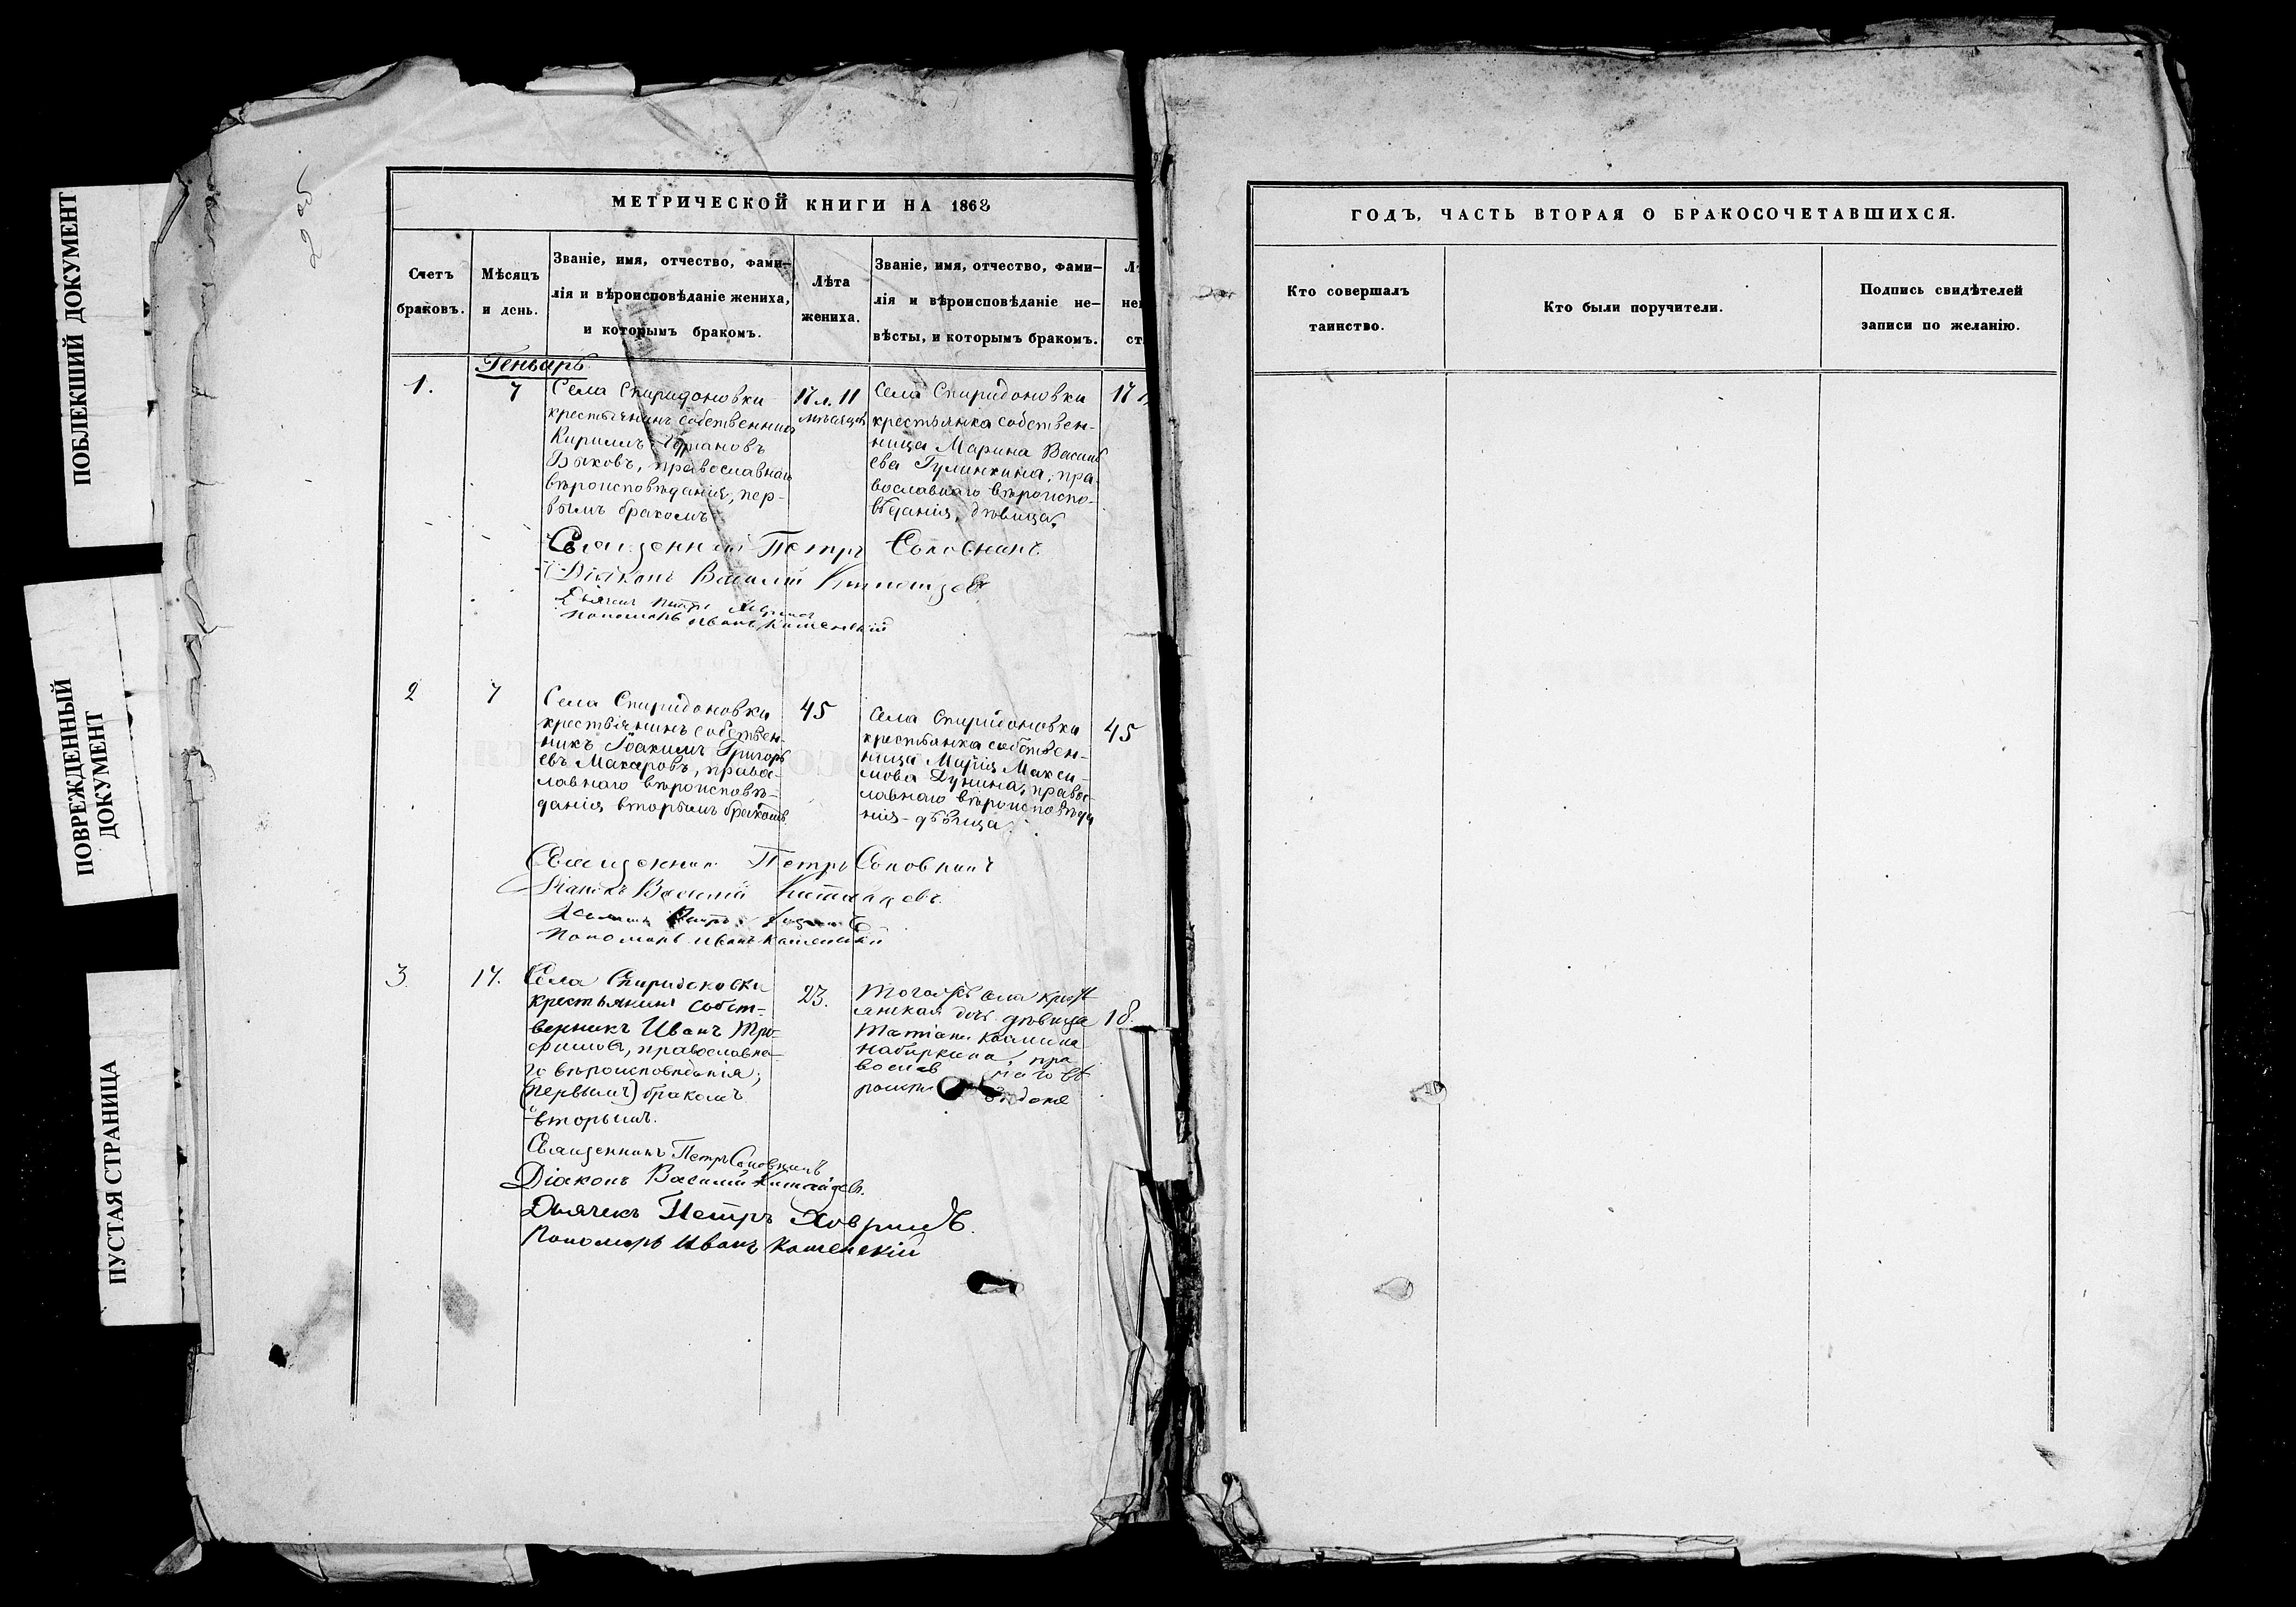 ПОБЛЕКШИЙ ДОКУМЕНТ
ПОВРЕЖДЕННЫЙ
ДОКУМЕНТ
ПУСТАЯ СТРАНИЦА
2 об
МЕТРИЧЕСКОЙ КНИГИ НА 1868
Счетъ
браковъ.
Мѣсяцъ
и день.
Званіе, имя, отчество, фами-
лія и вѣроисповѣданіе жениха,
и которымъ бракомъ.
Лѣта
жениха.
Званіе, имя, отчество, фами-
лія и вѣроисповѣданіе не-
вѣсты, и которымъ бракомъ.
Генварь
1.
7
Села Спиридоновки
крестьянинъ собственникъ
Кириллъ
Быковъ, православнаго
вѣроисповѣданія, пер-
вымъ бракомъ
17 л. 11
мѣсяцовъ
Села Спиридоновки
крестьянка собствен-
ница Марина Василь
ева Гулинкина, пра-
вославнаго вѣроиспо-
вѣданія, дѣвица.
17
Священникъ Петръ
Діаконъ Василій
Дьячекъ Петръ
Пономарь Иванъ Каменскій
2
7
Села Спиридоновки
крестьянинъ собствен-
никъ Іоакимъ Григорь
евъ Макаровъ, правос-
лавнаго вѣроисповѣ-
данія вторымъ бракомъ.
45
Села Спиридоновки
крестьянка собствен-
ница Марія Макси-
мова Дунина, правос-
лавнаго вѣроисповѣда
нія - дѣвица.
45
Священникъ Петръ
Василій
Петръ
Пономарь Иванъ Каменскій
3.
17.
Села Спиридоновки
крестьянинъ собст-
венникъ Иванъ Тро-
фимовъ, православна-
го вѣроисповѣданія;
(первымъ) бракомъ
вторымъ.
23.
Того же села крест
янская дочь дѣвица
пра
18.
Священникъ Петръ
Діаконъ Василій
Дьячекъ Петръ
Пономарь Иванъ Каменскій
ГОДЪ, ЧАСТЬ ВТОРАЯ О БРАКОСОЧЕТАВШИХСЯ.
Кто совершалъ
таинство.
Кто были поручители.
Подпись свидѣтелей
записи по желанію.